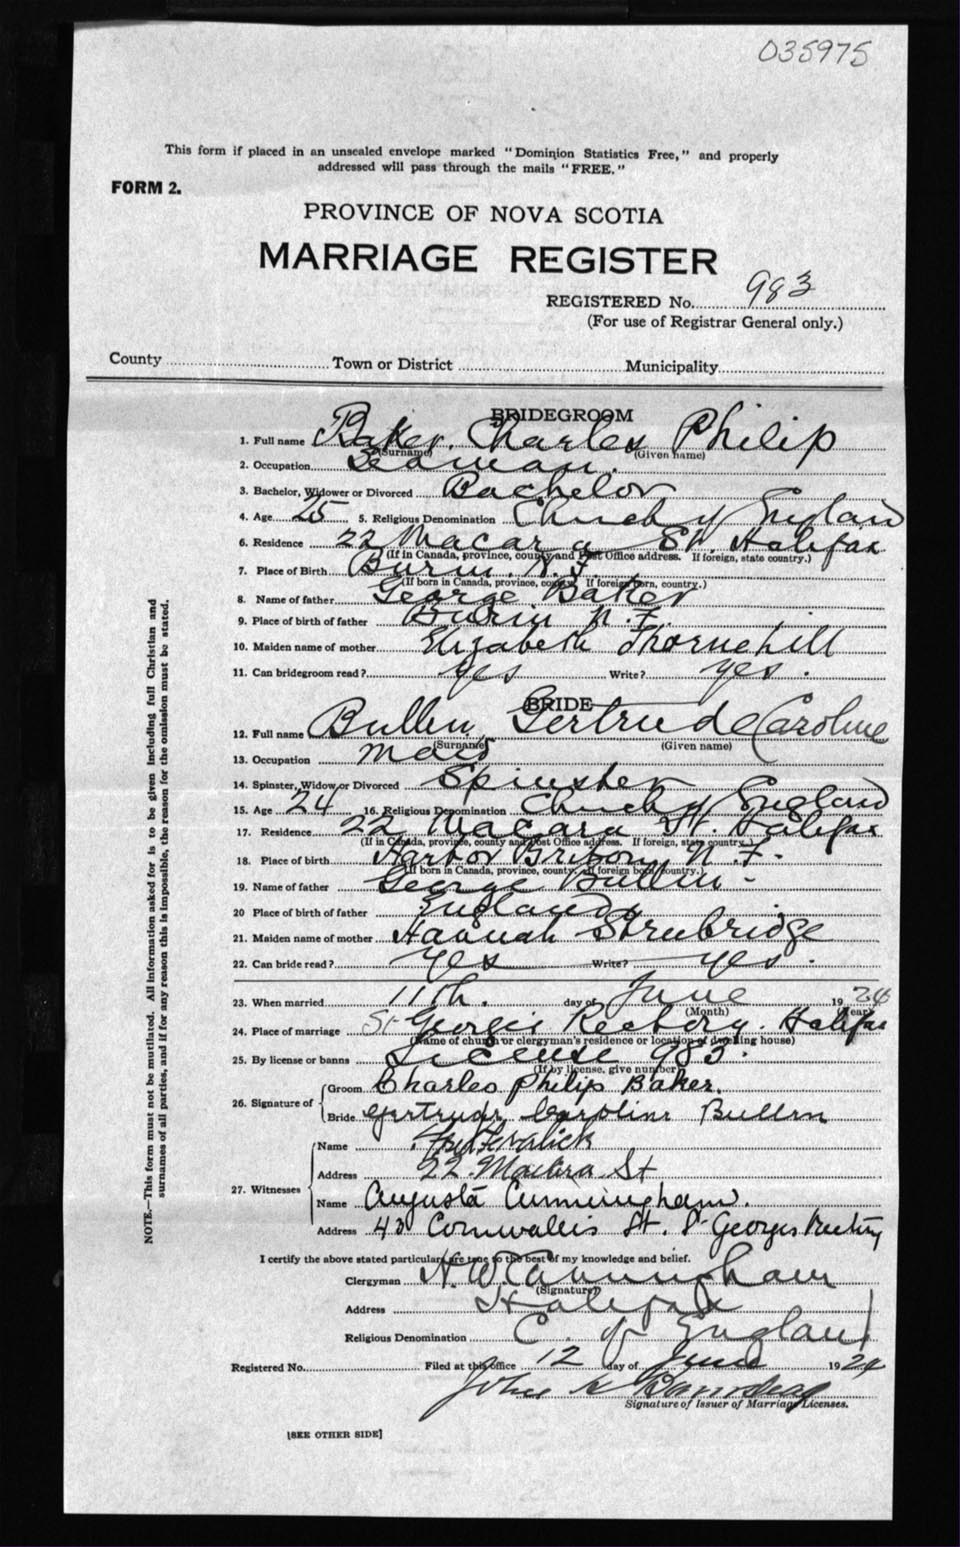 035975
This form if placed in an unsealed envelope marked "Dominion Statistics Free," and properly
addressed will pass through the mails "FREE."
FORM 2.
PROVINCE OF NOVA SCOTIA
MARRIAGE REGISTER
REGISTERED No. 983
(For use of Registrar General only.)
County Town or District Municipality
BRIDEGROOM
1. Full name Baker, Charles Philip
(Surname) (Given name)
2. Occupation Seaman.
3. Bachelor, Widower or Divorced Bachelor
4. Age 25 5. Religious Denomination Church of England
6. Residence 22 Macara St. Halifax
(If in Canada, province, county and Post Office address. If foreign, state country.)
7. Place of Birth Burin N.F.
(If born in Canada, province, county. If foreign born, country.)
8. Name of father George Baker
9. Place of birth of father Burin N.F.
10. Maiden name of mother Elizabeth Thornehill
11. Can bridegroom read? yes Write? yes.
BRIDE
12. Full name Bullen, Gertrude Caroline
(Surname) (Given name)
13. Occupation Maid
14. Spinster, Widow or Divorced Spinster
15. Age 24 16. Religious Denomination Church of England
17. Residence 22 Macara St. Halifax
(If in Canada, province, county and Post Office address. If foreign, state country.)
18. Place of birth Harbor Briton, N.F.
(If born in Canada, province, county. If foreign born country.)
19. Name of father George Bullen
20 Place of birth of father England
21. Maiden name of mother Hannah Strubridge
22. Can bride read? yes Write? yes.
23. When married 11th. day of June 19
(Month) (Year)
24. Place of marriage St Georges Rectory. Halifax
(Name of church or clergyman's residence or location of dwelling house)
25. By license or banns License 983.
(If by license, give number)
26. Signature of Groom Charles Philip Baker.
Bride Gertrude Caroline Bullen
27. Witnesses Name
Address 22 Macara St
Name Augusta Cunningham.
Address 43 Cornwallis St. St Georges Rectory
I certify the above stated particulars are true to the best of my knowledge and belief.
Clergyman H. W. Cunningham
(Signature)
Address Halifax
Religious Denomination C. of England
Registered No. Filed at this office 12 day of June 192
John
Signature of Issuer of Marriage Licenses.
[SEE OTHER SIDE]
NOTE.—This form must not be mutilated. All information asked for is to be given including full Christian and
surnames of all parties, and if for any reason this is impossible, the reason for the omission must be stated.